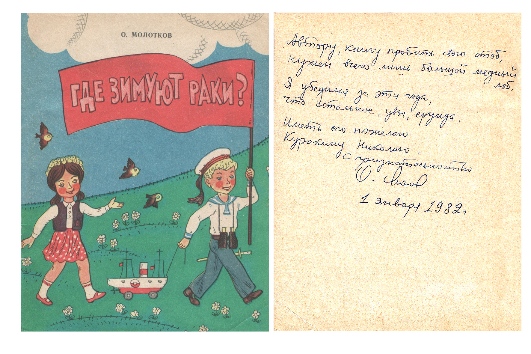 О. МОЛОТКОВ
ГДЕ ЗИМУЮТ РАКИ?
Автору, книгу пробить свою чтоб,
Нужен всего лишь большой медный
лоб,
Я убедился за эти года,
Что остальное, увы, ерунда.
Иметь его пожелаю
Курокину Николаю
С признательностью
1 января 1982 г.